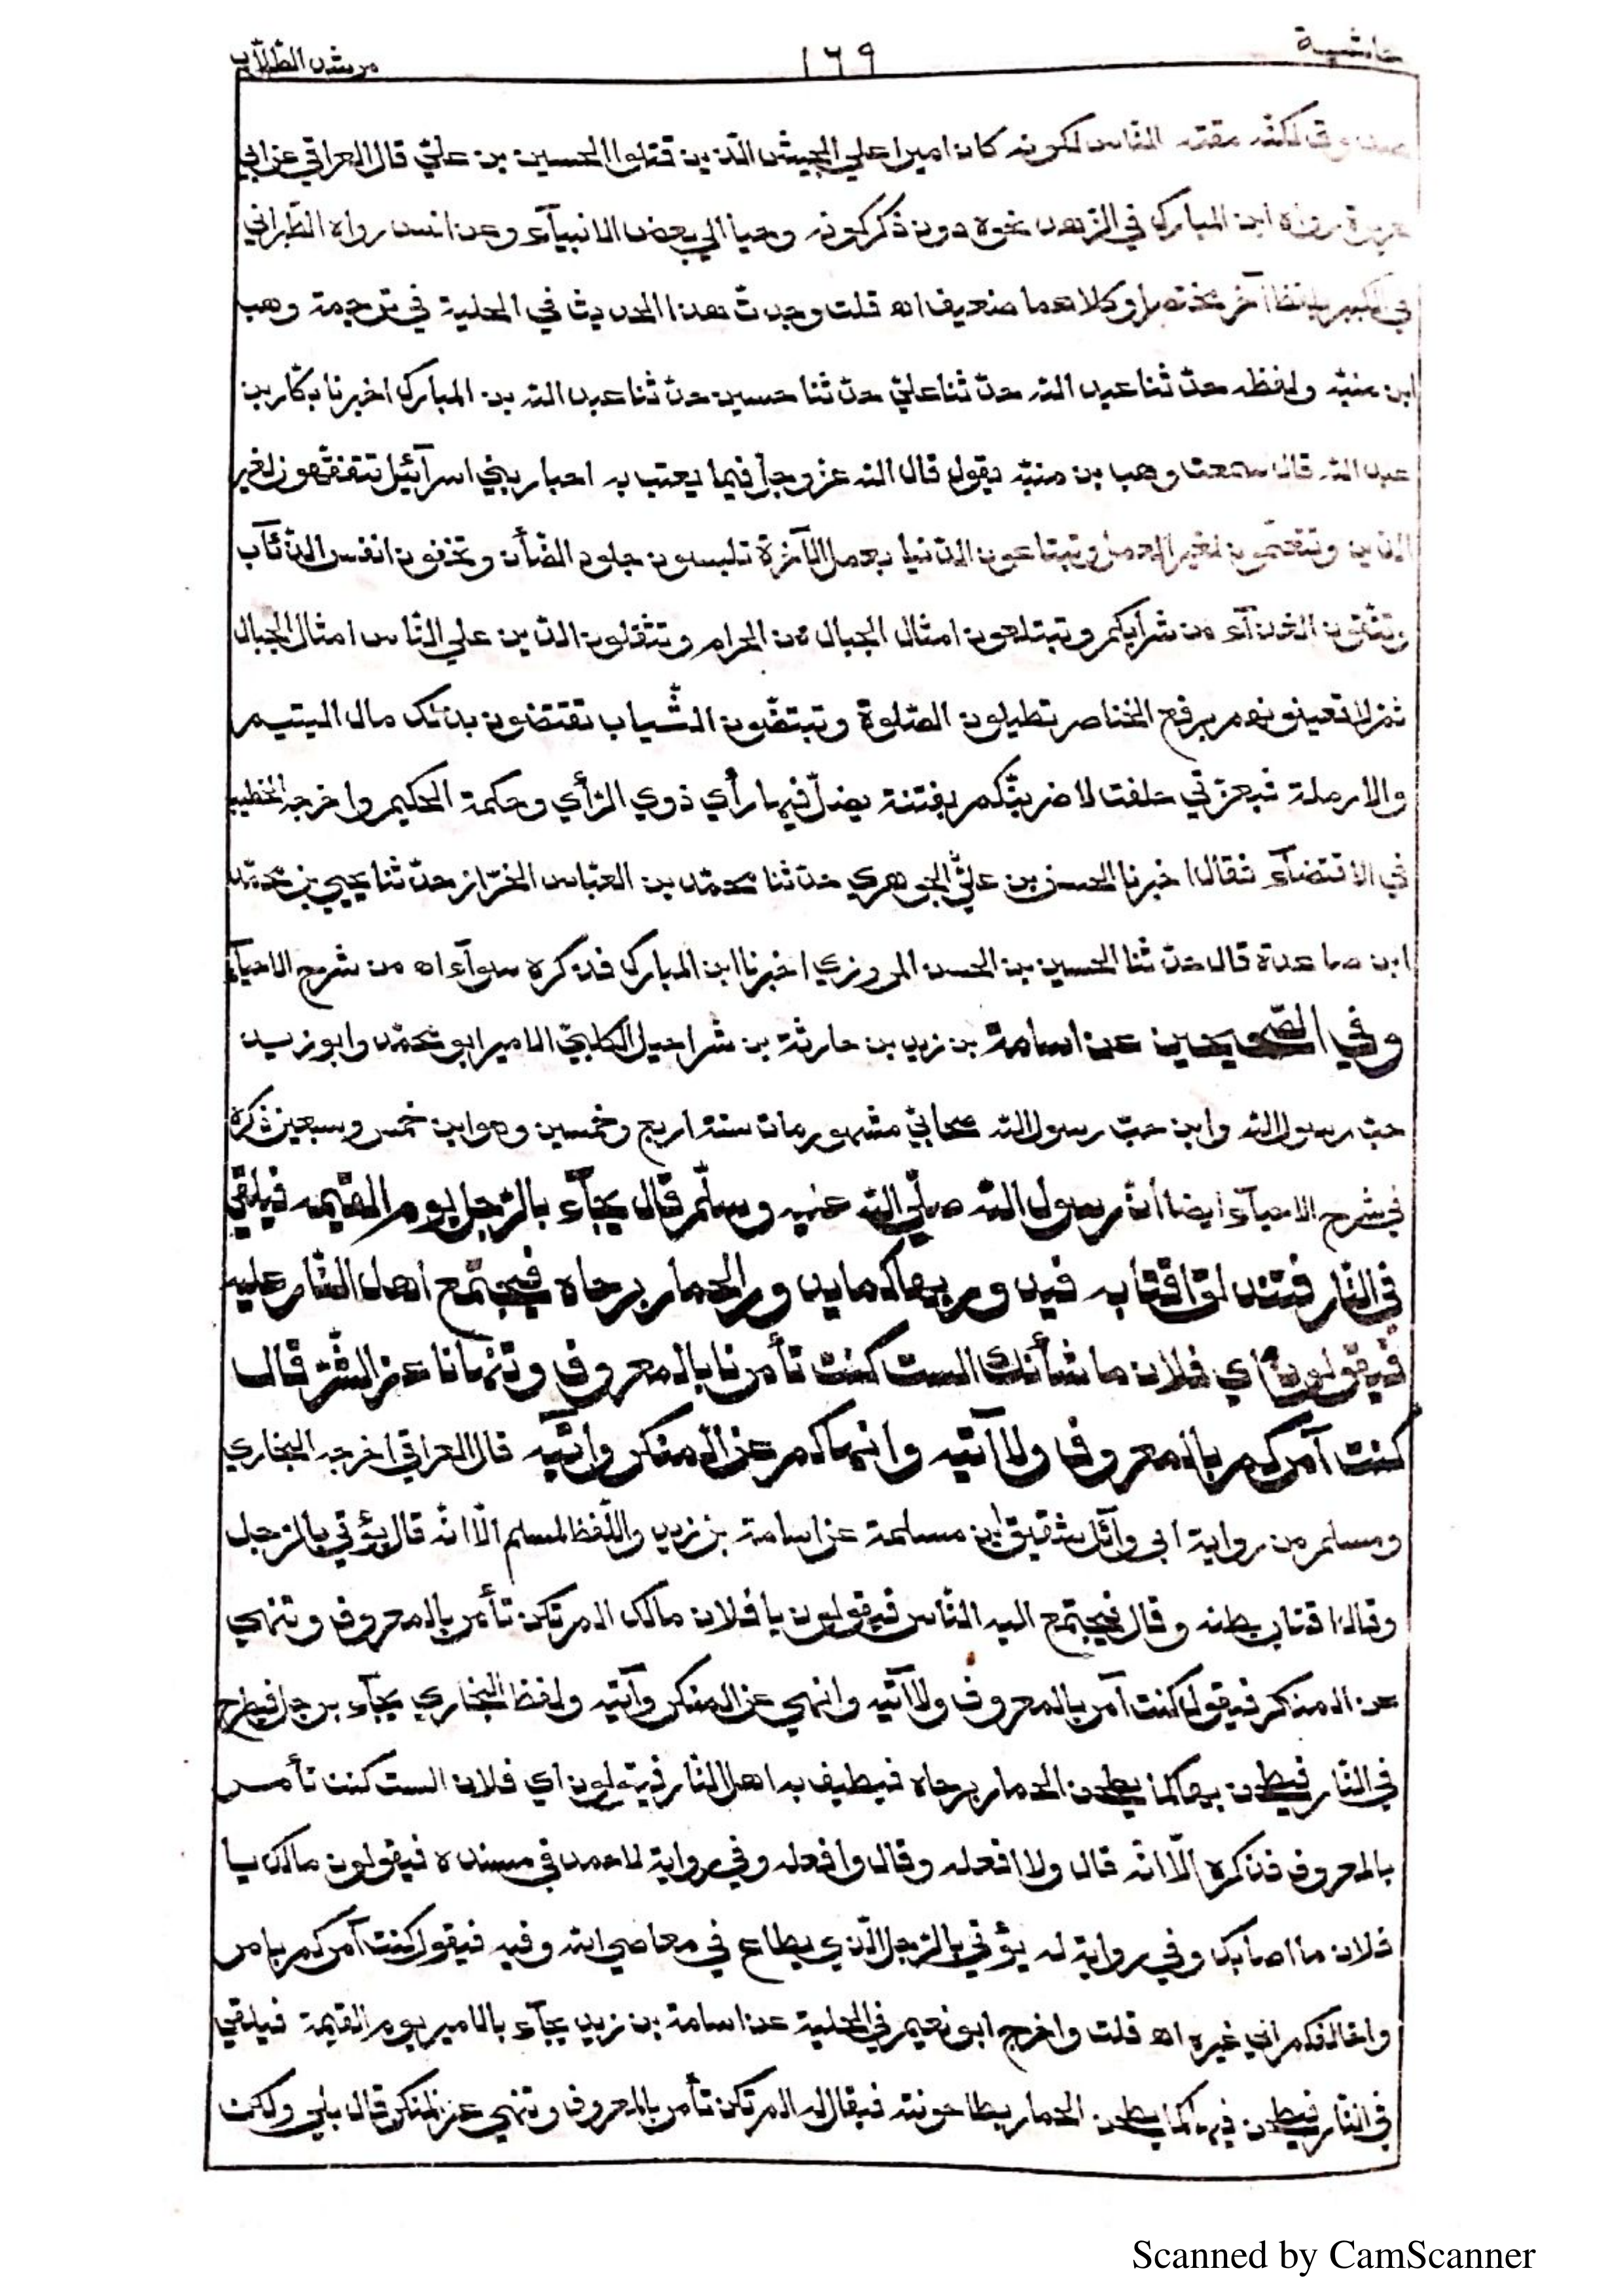 حاشية ١٦٩ مرشد الطلاب
صدوق لكنه مقته الناس لكونه كان اميرا علي الجيش الّذين قتلوا الحسين بن عليّ قال العراقي عن ابي
هريرة رواه ابن المبارك في الزهد نحوه دون ذكر كونه وحيا الي بعض الانبيآء وعن انس رواه الطّبراني
في الكبير بلفظ آخر مختصرا وكلاهما ضعيف اه قلت وجدتّ هذا الحديث في الحلية في ترجمة وهب
ابن منبّه ولفظه حدّثنا عبد الله حدّثنا عليّ حدّثنا حسين حدّثنا عبد الله بن المبارك اخبرنا بكّار بن
عبد الله قال سمعت وهب بن منبّه يقول قال الله عزّ وجلّ فيما يعتب به احبار بني اسرآئيل تتفقّهون لغير
الدّين وتتعلّمون لغير العمل وتبتاعون الدّنيا بعمل الآخرة تلبسون جلود الضّأن وتخفون انفس الذّئآب
وتنقّون القذآء من شرابكم وتبتلعون امثال الجبال من الحرام وتثقلون الدّين علي النّاس امثال الجبال
ثمّ لا تعينونهم برفع الخناصر تطيلون الصّلوة وتبيّضون الثّياب تقتضون بذلك مال اليتيم
والارملة فبعزّتي حلفت لاضربنّكم بفتنة يضلّ فيها رأي ذوي الرّأي وحكمة الحكيم واخرجه الخطيب
في الاقتضآء فقال اخبرنا الحسن بن عليّ الجوهري حدّثنا محمّد بن العبّاس الخزّاز حدّثنا يحيي بن محمّد
ابن صاعدة قال حدّثنا الحسين بن الحسن المروزي اخبرنا ابن المبارك فذكره سوآء اه من شرح الاحيآء
وفي الصّحيحين عن اسامة بن زيد بن حارثة بن شراحيل الكلبيّ الامير ابو محمّد وابو زيد
حبّ رسول الله وابن حبّ رسول الله صحابيّ مشهور مات سنة اربع وخمسين وهو ابن خمس وسبعين ذكره
في شرح الاحيآء ايضا انّ رسول الله صلّي الله عليه وسلّم قال يجآء بالرّجل يوم القيمة فيلقي
في النّار فتندلق اقتابه فيدور بها كما يدور الحمار برحاه فيجتمع اهل النّار عليه
فيقولون اي فلان ما شأنك الست كنت تأمرنا بالمعروف وتنهانا عن الشّرّ قال
كنت آمركم بالمعروف ولا آتيه وانهاكم عن المنكر وآتيه قال العراقي اخرجه البخاري
ومسلم من رواية ابي وآئل شقيق ابن مسلمة عن اسامة بن زيد واللّفظ لمسلم الّا انّه قال يؤتي بالرّجل
وقال اقتاب بطنه وقال فيجتمع اليه النّاس فيقولون يا فلان مالك الم تكن تأمر بالمعروف وتنهي
عن المنكر فيقول كنت آمر بالمعروف ولا آتيه وانهي عن المنكر وآتيه ولفظ البخاري يجآء برجل فيطرح
في النّار فيطحن بها كما يطحن الحمار برحاه فيطيف به اهل النّار فيقولون اي فلان الست كنت تأمر
بالمعروف فذكره الّا انّه قال ولا افعله وقال وافعله وفي رواية لاحمد في مسنده فيقولون مالك يا
فلان ما اصابك وفي رواية له يؤتي بالرّجل الّذي يطاع في معاصي الله وفيه فيقول كنت آمركم بامر
واخالفكم الي غيره اه قلت واخرج ابو نعيم في الحلية عن اسامة بن زيد يجآء بالامير يوم القيمة فيلقي
في النّار فيطحن فيها كما يطحن الحمار بطاحونته فيقال له الم تكن تأمر بالمعروف وتنهي عن المنكر قال بلي ولكن
Scanned by CamScanner